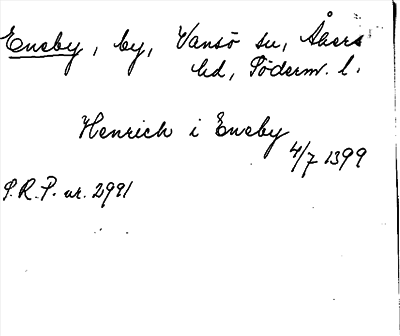 Eneby, by, Vansö sn, Åkers
hd, Söderm. l.
Henrich i Eneby
4/7 1399
S.R.P. nr. 2991